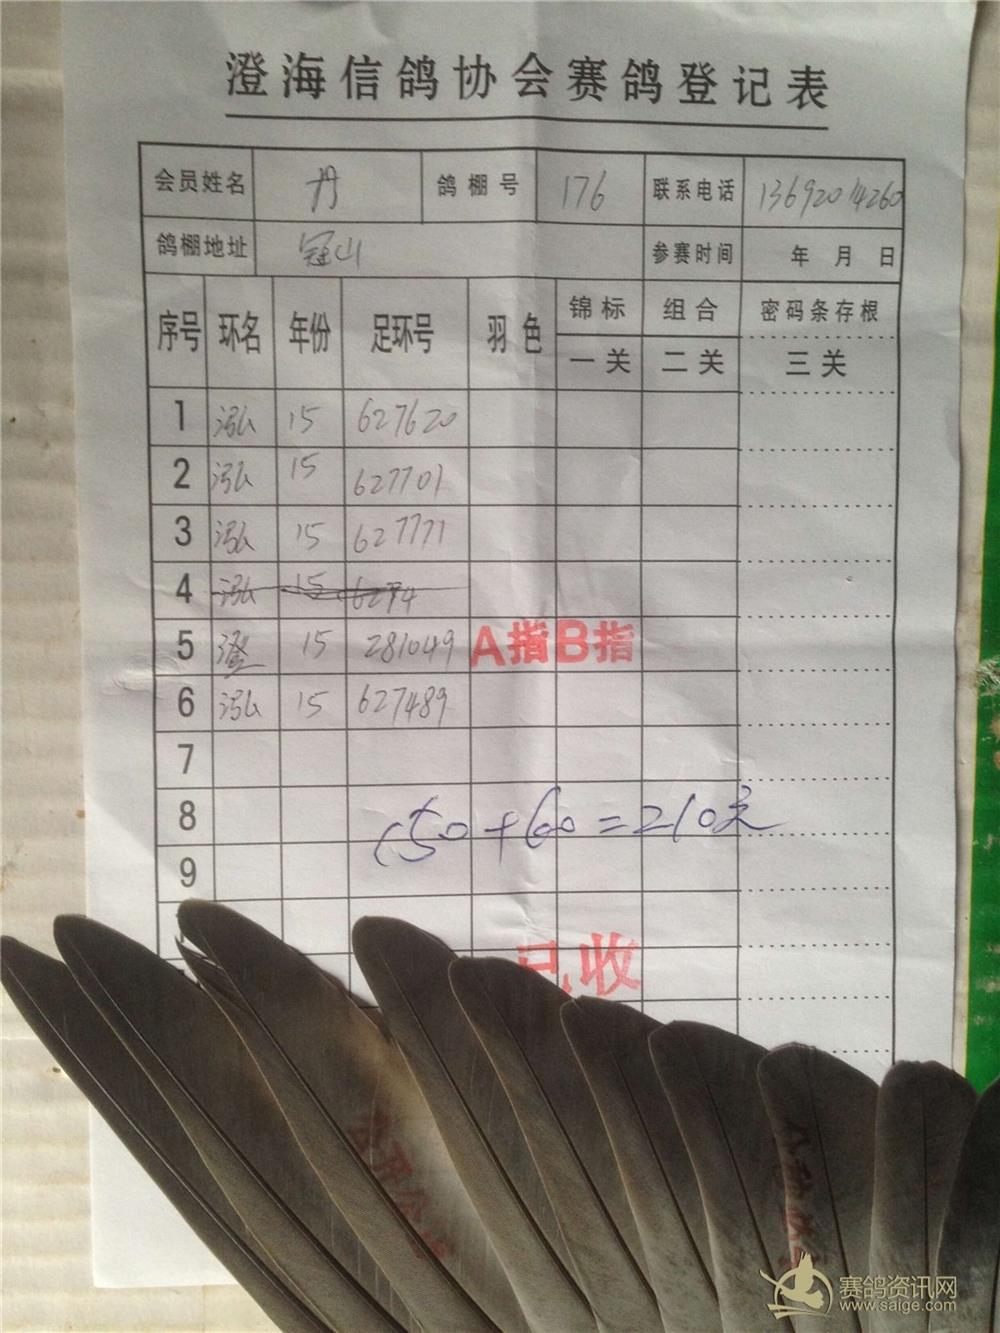 澄海信鸽协会赛鸽登记表
会员姓名 丹 鸽棚号 176 联系电话 13692014260
鸽棚地址 冠山 参赛时间 年 月 日
序号 环名 年份 足环号 羽色 锦标 组合 密码条存根
一关 二关 三关
1 泓 15 627620
2 泓 15 627701
3 泓 15 627771
4 泓 15 6274
5 澄 15 281049 A指B指
6 泓 15 627489
7
8
150+60=210元
9
已收
赛鸽资讯网
www.saige.com